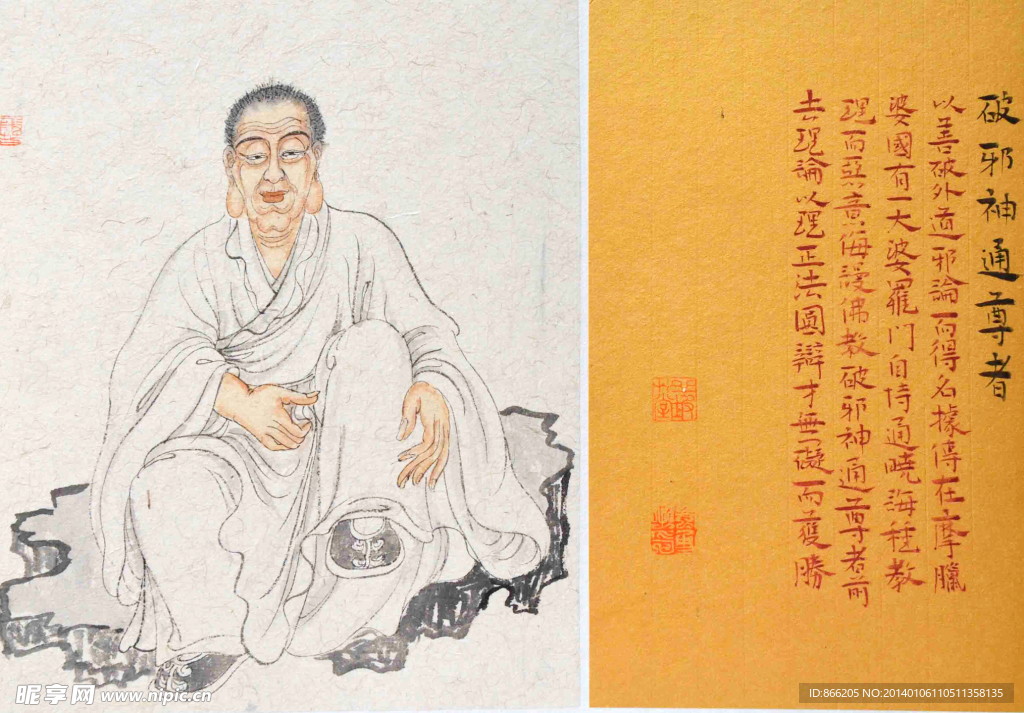 破邪神通尊者
以善破外道邪論而得名據傳在摩臘
婆國有一大婆羅门自恃通曉海種教
理而惡意侮謾佛教破邪神通尊者前
去理論以理正法圓辯才無礙而獲勝
昵享网 www.nipic.cn
ID:866205 NO:20140106110511358135